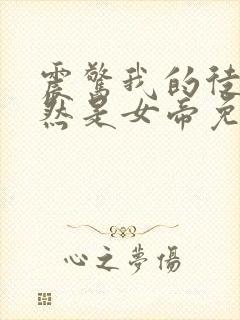 震驚我的徒
然是女帝免
心之夢傷